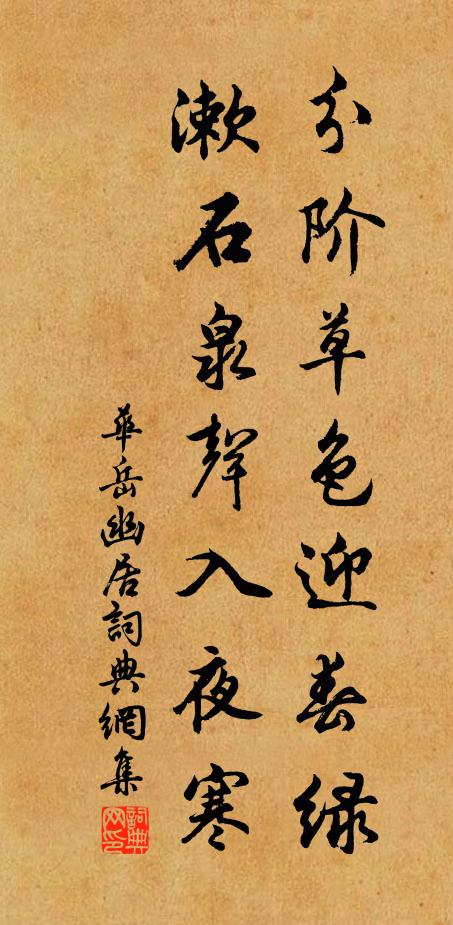 分阶草色迎春绿
漱石泉聲入夜寒
華岳幽居詞典網集
詞典网印